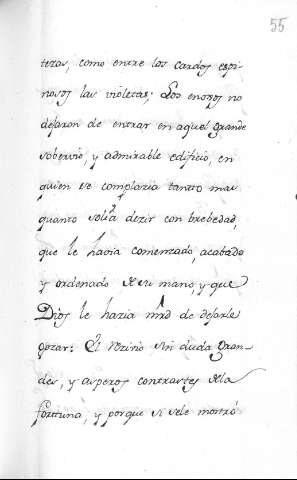 55
tezas, como entre los cardos espi-
nosos las violetas; Los enojos no
dejaron de entrar en aquel grande
sobervio, y admirable edificio, en
quien se complazia tanto mas
quanto solia dezir con brebedad,
que le havia comenzado, acabado
y ordenado de su mano, y que
Dios le hazia mrd de dejarle
gozar: El vezino sin duda gran-
des, y asperos contrastes de la
fortuna, y porque si se le mostró